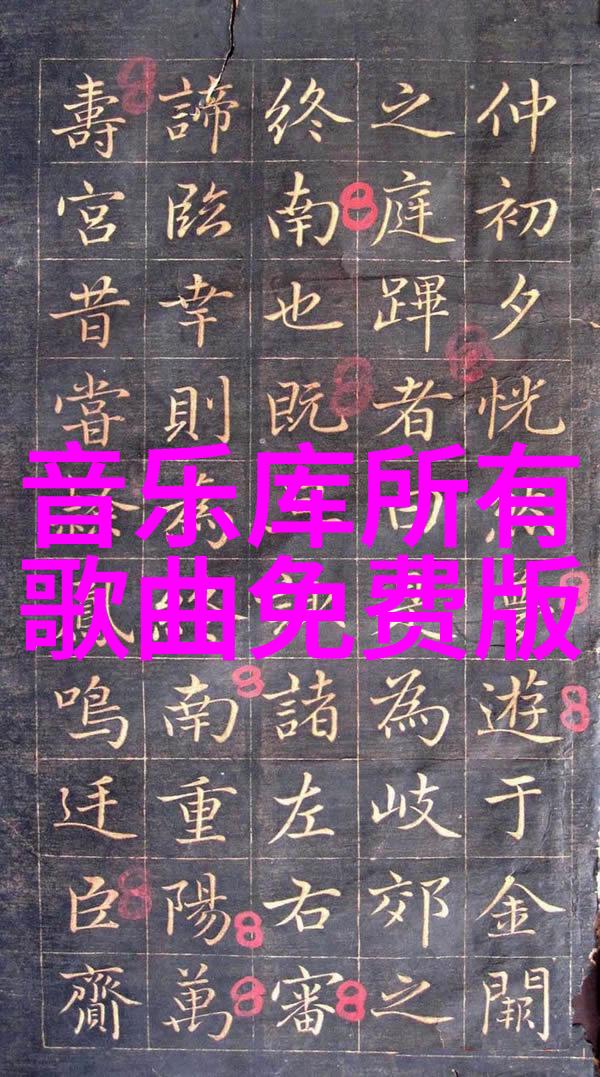 音乐库所有
歌曲免费版
仲初夕恍遊于金闕
之庭蹕者為岐郊之
終南也既諸左右審
諦臨幸則為終南重陽萬
壽宮昔嘗鳳鳴臣齎